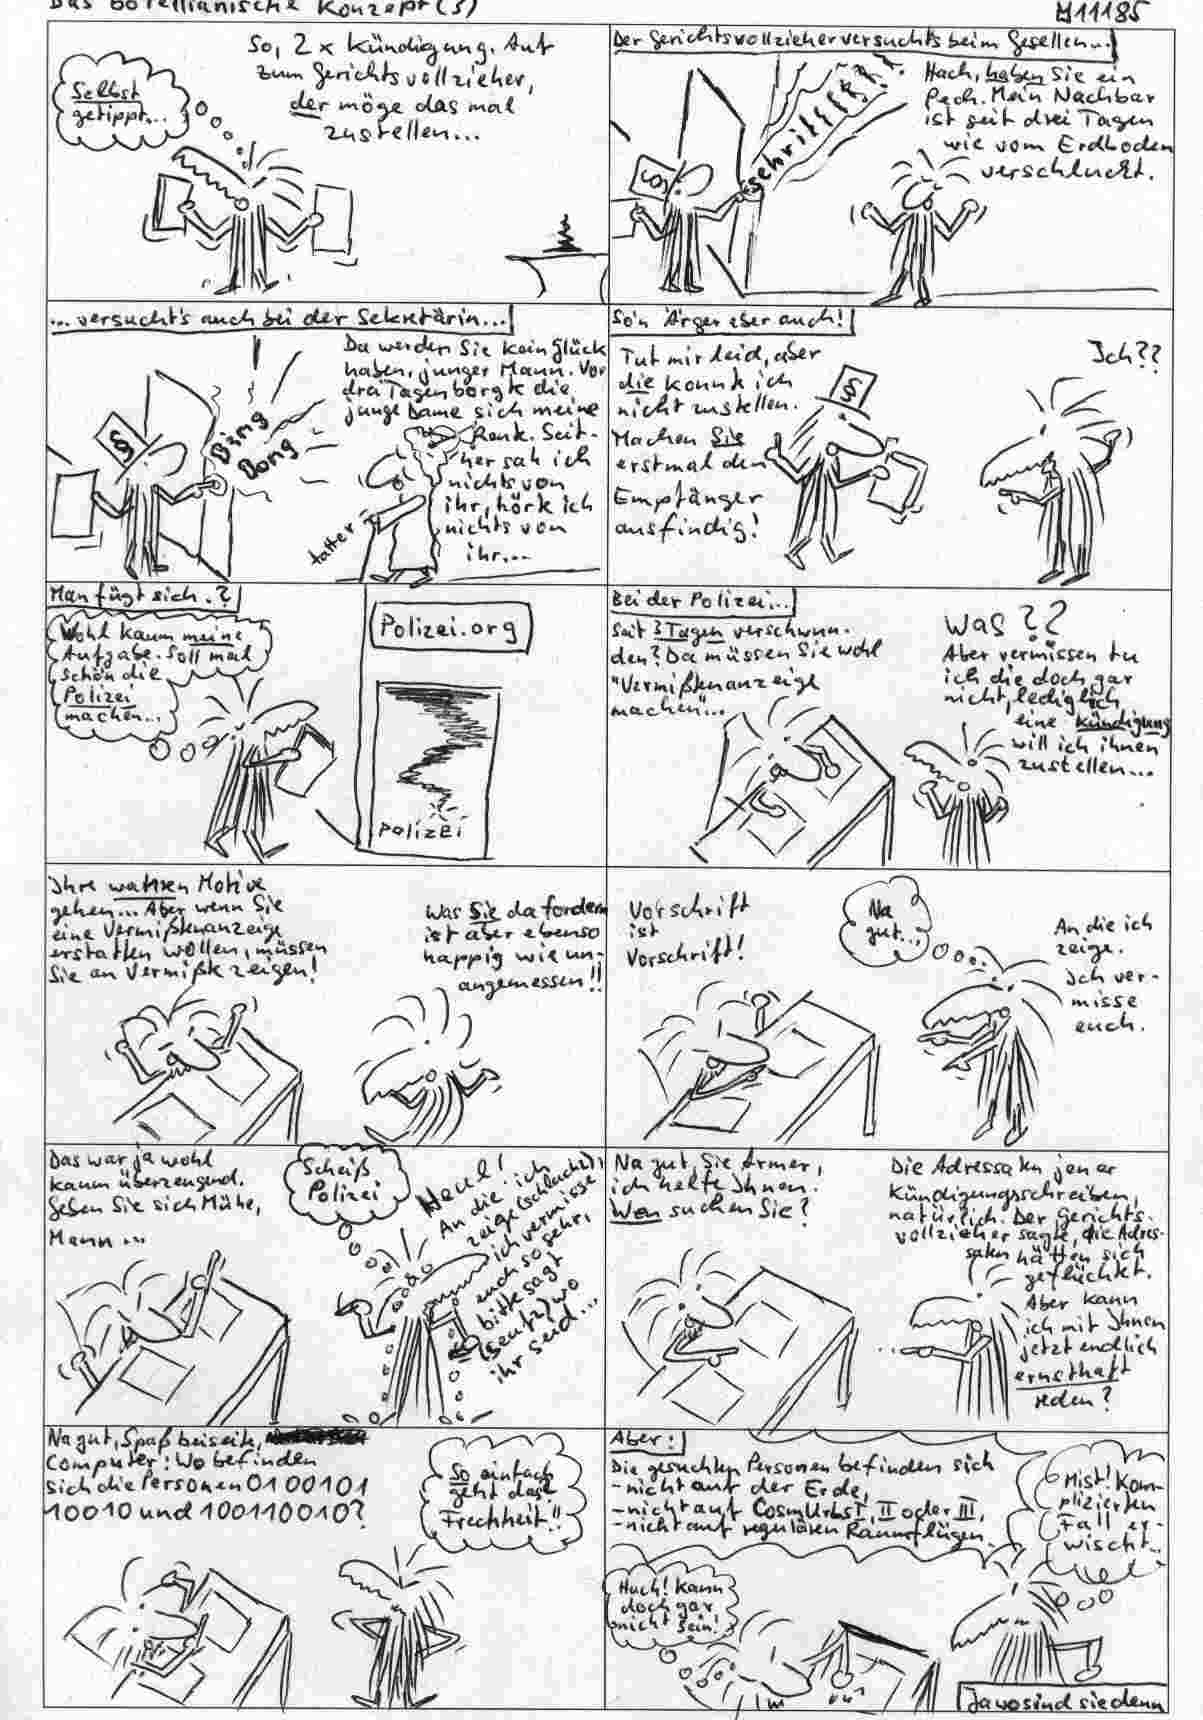 Das borellianische Konzept (3)
11185
Selbst
getippt...
So, 2x Kündigung. Auf
zum Gerichtsvollzieher,
der möge das mal
zustellen...
Der Gerichtsvollzieher versucht's beim Gesellen...
schrillll!!!
Hach, haben Sie ein
Pech. Mein Nachbar
ist seit drei Tagen
wie vom Erdboden
verschluckt.
§
...versucht's auch bei der Sekretärin...
Da werden Sie kein Glück
haben, junger Mann. Vor
drei Tagen borgte die
junge Dame sich meine
Rente. Seit-
her sah ich
nichts von
ihr, hörte ich
nichts von
ihr...
§
Ding
Dong
tatter
So'n Ärger aber auch!
Tut mir leid, aber
die konnte ich
nicht zustellen.
Machen Sie
erstmal den
Empfänger
ausfindig!
§
Ich??
Man fügt sich.?
Wohl kaum meine
Aufgabe. Soll mal
schön die
Polizei
machen...
Polizei.org
Polizei
Bei der Polizei...
Seit 3 Tagen verschwun-
den? Da müssen Sie wohl
"Vermißtenanzeige
machen"...
Was??
Aber vermissen tu
ich die doch gar
nicht, lediglich
eine Kündigung
will ich ihnen
zustellen...
Ihre wahren Motive
gehen... Aber wenn Sie
eine Vermißtenanzeige
erstatten wollen, müssen
Sie an Vermißte zeigen!
Was Sie da fordern
ist aber ebenso
happig wie un-
angemessen!!
Vorschrift
ist
Vorschrift!
Na
gut...
An die ich
zeige.
Ich ver-
misse
euch.
Das war ja wohl
kaum überzeugend.
Geben Sie sich Mühe,
Mann...
Scheiß
Polizei
Heul!
An die ich
zeige (schluchz),
ich vermisse
euch so sehr,
bitte sagt
(seufz) wo
ihr seid...
Na gut, Sie Armer,
ich helfe Ihnen.
Wen suchen Sie?
Die Adressaten jener
Kündigungsschreiben,
natürlich. Der Gerichts-
vollzieher sagte, die Adres-
saten hätten sich
geflüchtet.
Aber kann
ich mit Ihnen
jetzt endlich
ernsthaft
reden?
Na gut, Spaß beiseite,
Computer: Wo befinden
sich die Personen 0100101
10010 und 100110010?
So einfach
geht das?
Frechheit!!
Aber:
Die gesuchten Personen befinden sich
-nicht auf der Erde,
-nicht auf CosmUrbs I, II oder III,
-nicht auf regulären Raumflügen.
Mist! Kom-
plizierten
Fall er-
wischt...
Huch! Kann
doch gar
nicht sein!
Ja wo sind sie denn